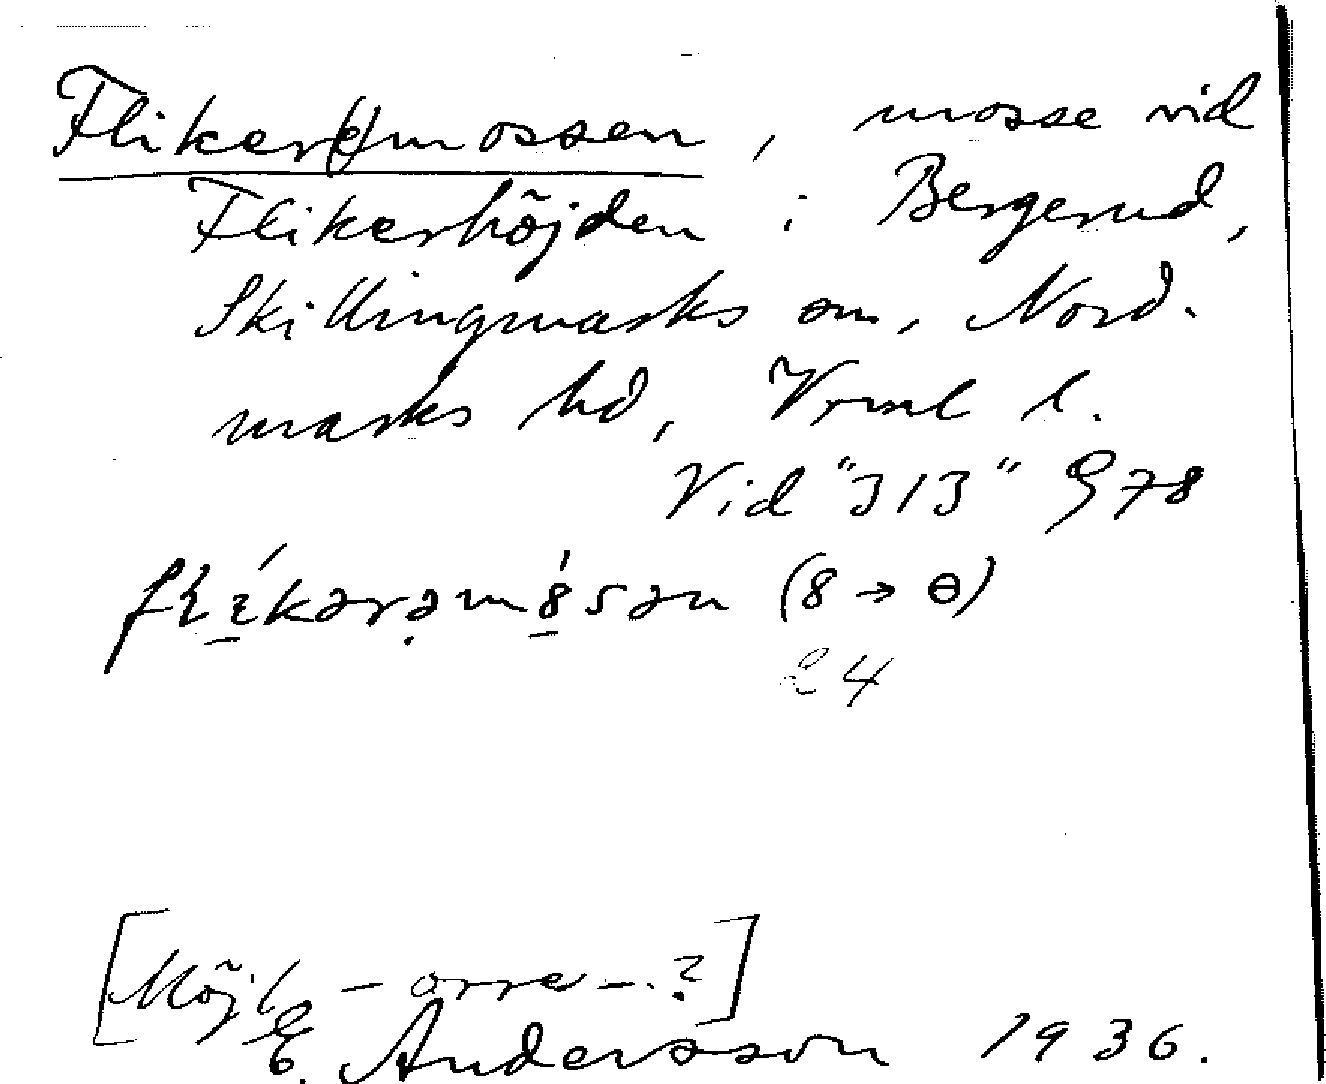 Fliker(e)mossen, mosse vid
Flikerhöjden i Bergerud,
Skillingmarks sn, Nord-
marks hd, Vrml l.
Vid "313" G 78
flíkərəmósən (8 → ɵ)
24
[Möjl. – orre –.?]
E. Andersson 1936.